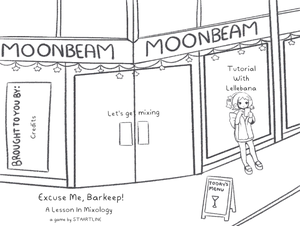 MOONBEAM
MOONBEAM
BROUGHT TO YOU BY:
Credits
Let's get mixing
Tutorial
With
Lellebana
Excuse Me, Barkeep!
A Lesson In Mixology
a game by STAARTLINE
TODAY'S
MENU